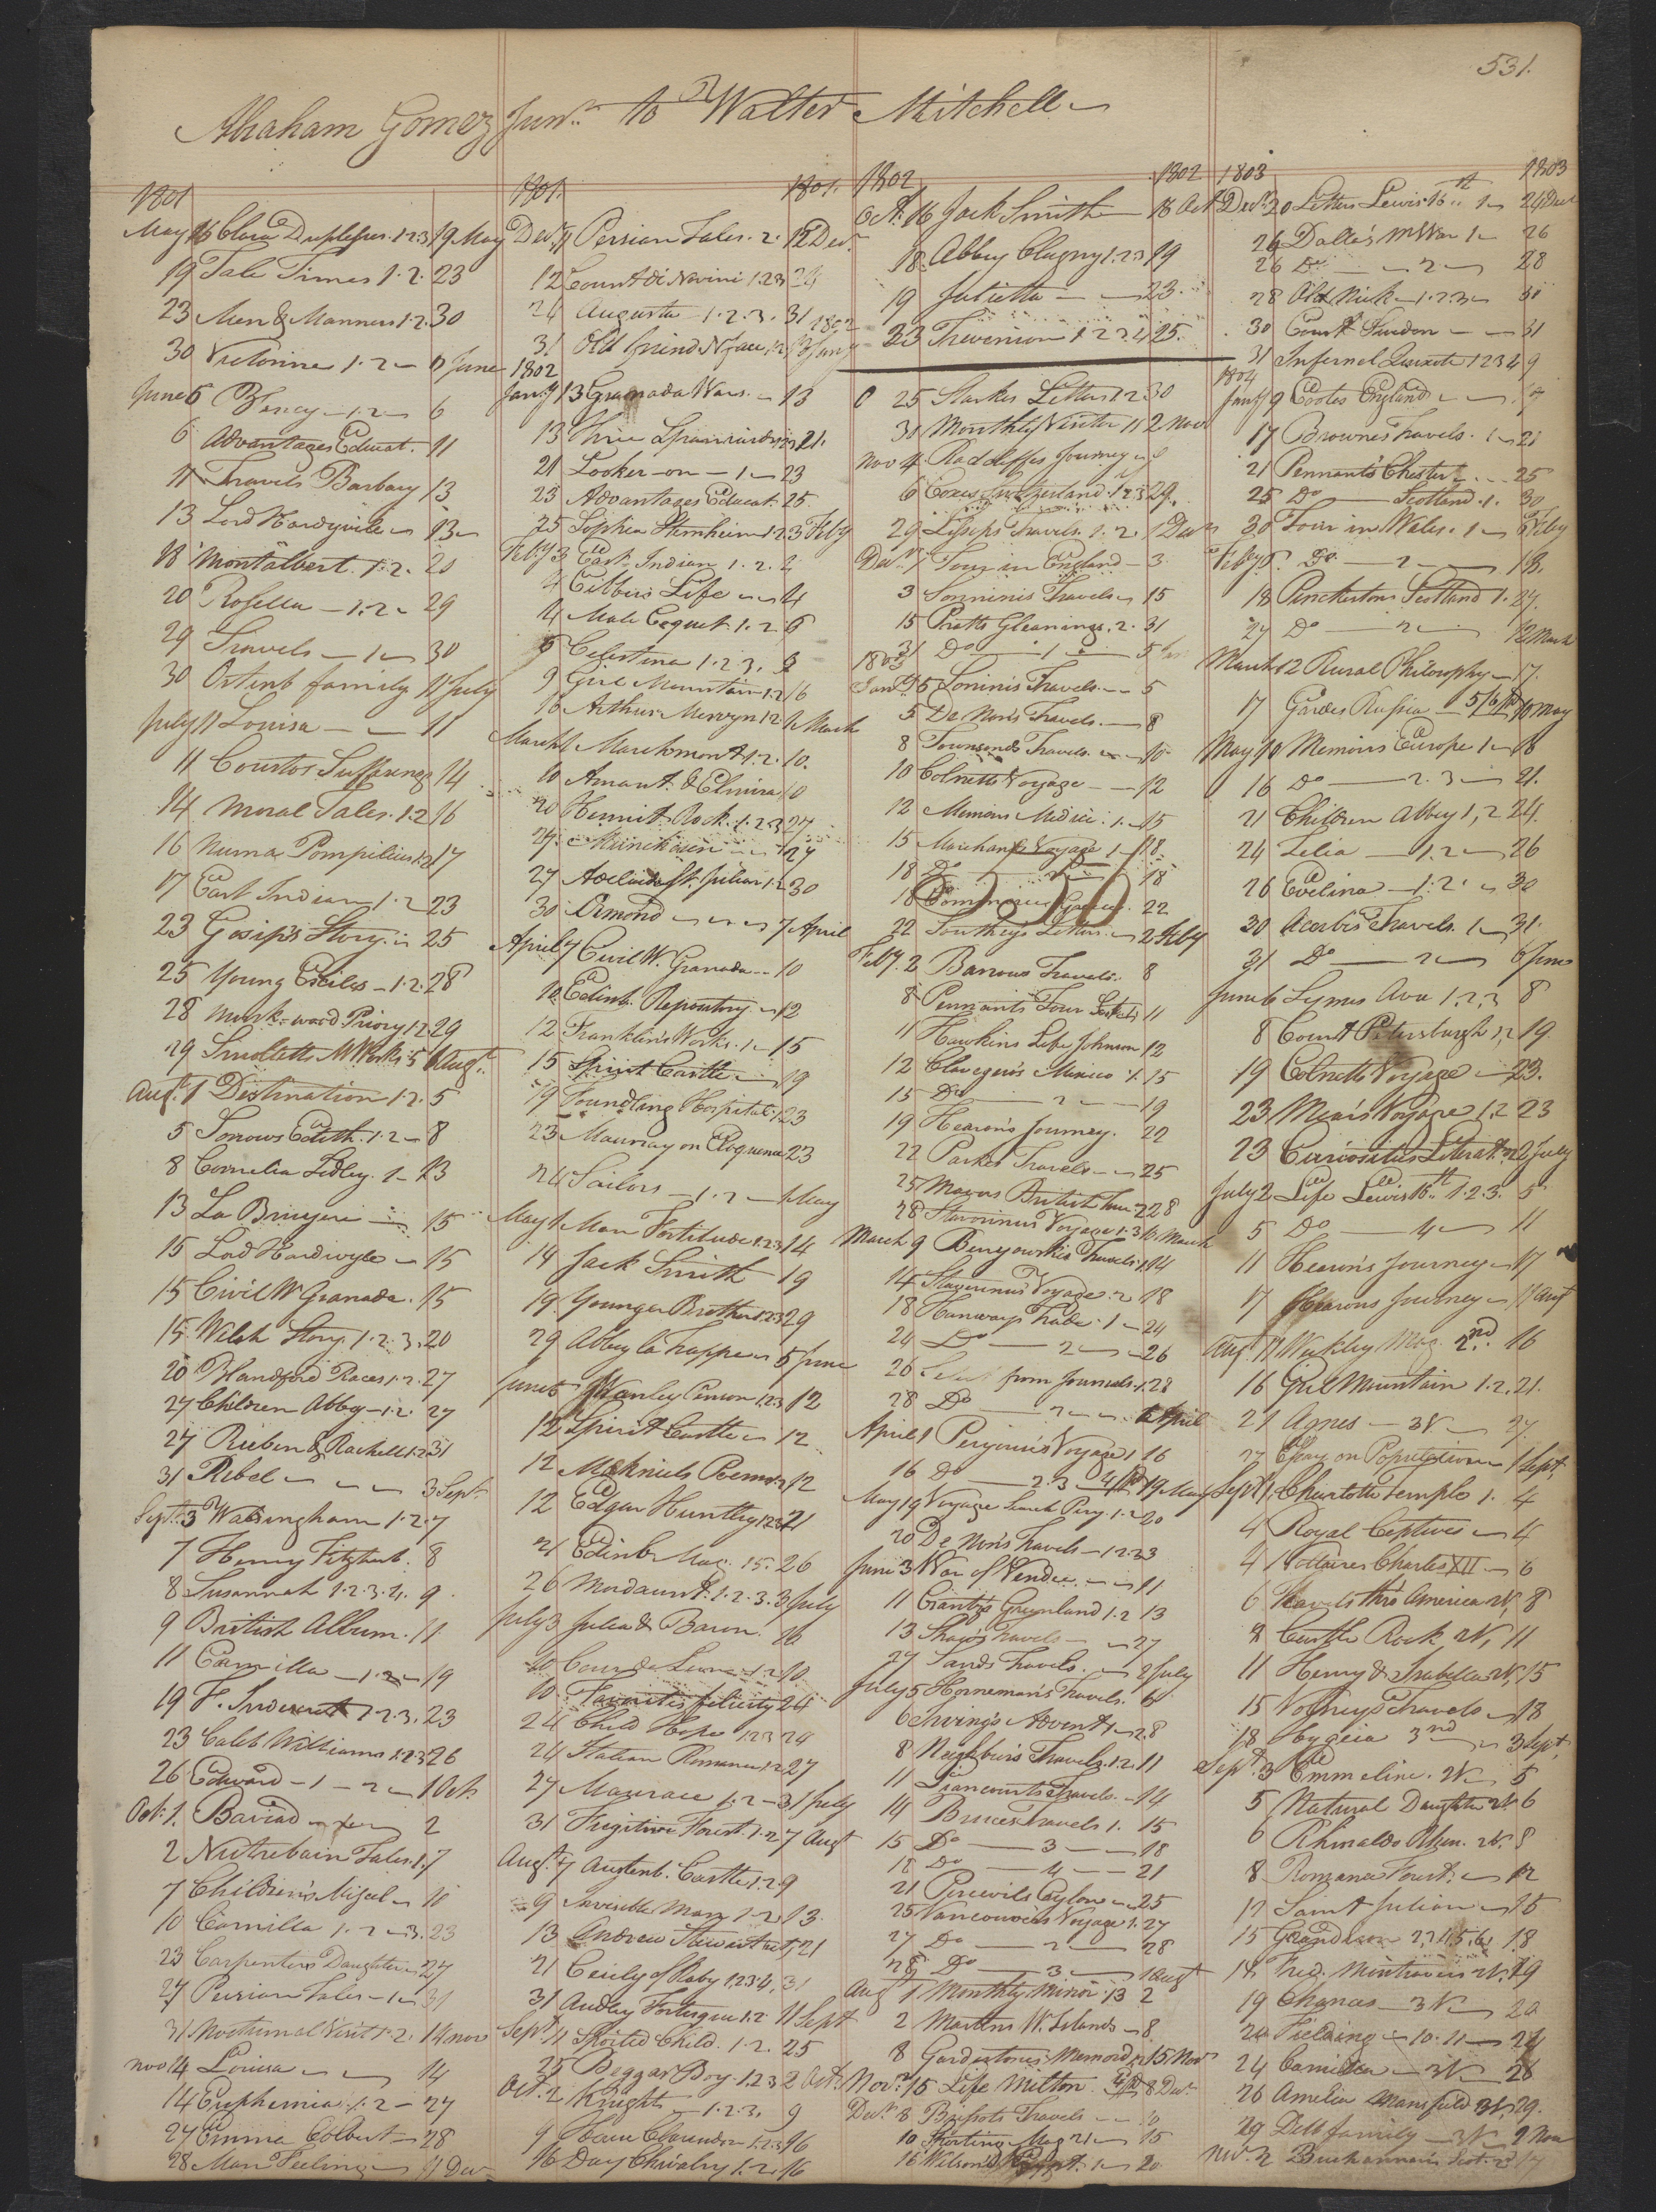 531.
Abraham Gomez Junr. to Walter Mitchell
1801
May 16 Clara Duplessis. 1.2.3 19 May
19 Tale Times 1.2. 23
23 Men & Manners 1.2. 30
30 Victorine 1.2 June
June 6 1.2 6
6 Advantages Educat. 11
11 Travels Barbary 13
13 Lord Hardyville 13
18 Montalbert 1.2. 20
20 Rosella 1.2 29
29 Travels 1 30
30 Ortenb family 11 July
July 11 Louisa 11
11 Courtos Sufferings 14
14 Moral Tales. 1.2 16
16 Numa Pompilius 1.2 17
17 East Indian 1.2 23
23 Gosip's Story 25
25 Young Exiles 1.2. 28
28 Mark-ward Priory 1.2 29
29 Smolletts M Works. 5 1 Augt.
Augt. 1 Destination 1.2. 5
5 Sorrows Edith. 1.2 8
8 Cornelia Sedley. 1 13
13 La Bruyere 15
15 Lord Hardivyle 15
15 Civil W Granada. 15
15 Welsh Story. 1.2.3. 20
20 Blandford Races 1.2. 27
27 Children Abby 1.2. 27
27 Rueben & Rachell 1.2 31
31 Rebel 3 Sept.
Sept. 3 Walsingham 1.2. 7
7 Henry Fitzherb. 8
8 Susannah 1.2.3.4. 9
9 British Album. 11
11 Camilla 1.2 19
19 F. 1.2.3. 23
23 Caleb Williams 1.2.3 26
26 Edward 1 2 1 Oct.
Oct. 1. Baviad 2
2 Nutrebain Tales. 1. 7
7 Children's Misel 10
10 Camilla 1.2 3. 23
23 Carpenters Daughter 27
27 Persian Tales 1 31
31 Nocturnal Visit 1.2. 14 Nov
Nov 14 Louisa 14
14 Euphemia 1.2 27
27 Emma Colbert 28
28 Man Feeling 11 Dec
1801. 1801.
Decr. 11 Persian Tales. 2. 12 Decr.
12 Count di Novini 1.2.3 24
24 Augusta 1.2.3. 31 1802
31 Old friend N face 1.2 13 Jany
1802
Jany 13 Granada Wars. 13
13 Three Spaniards 21.
21 Looker-on 1 23
23 Advantages Educat. 25.
25 Sophia Sternheim 1.2 3 Feby
Feby 3 East Indian 1.2. 2
4 Cibber's Life 4
4 Male Coquet. 1.2 6
6 Celestina 1.2.3. 9
9 Girl Mountain 1.2 16
16 Arthur Mervyn 1.2 1 March
March 1 Marchmont 1.2. 10.
10 Amant. & Elmira 10
20 Hermit Rock. 1.2.3 27
27 Munchausen 27
27 Adelaide St. Julian 1.2 30
30 Ormond 7 April
April 7 Civil W. Granada 10
10 Edinb. Repository 12
12 Franklin's Works. 1 15
15 Spirit Castle 19
19 Foundling Hospital 1. 23
23 Maurray on Eloquence 23
24 Sailors 1.2 1 May
May 1 Man Fortitude 1.2.3 14
14 Jack Smith 19
19 Younger Brother 1.2.3 29
29 Abby la Trappe 5 June
June 5 Stanley Cimon 1.2.3 12
12 Spirit Castle 12
12 McKniels Poems 1.2 12
12 Edgar Huntley 1.2.3 21
21 Edinb Mag. 15. 26
26 Mordaunt. 1.2.3. 3 July
July 3 Julia & Baron. 10
10 Ceur de Leon 1.2 10.
10 Favorites felicity 24
24 Child Hope 1.2.3 24
24 Italian Romance 1.2 27
27 Mazerace 1.2 31 July
31 Fugitive Forest. 1.2 7 Augt
Augt. 7 Austenb. Castle 1.2 9
9 Invisible Man 1.2 13.
13 Andrew Stewart 21
21 Cecily of Raby 1.2.3.4. 31
31 Audley Fortesque 1.2 11 Sept
Sept. 11 Spoiled Child. 1.2. 25
25 Beggar Boy. 1.2.3 2 Oct.
Oct. 2 Knights 1.2.3. 9
9 Clarendon 1.2.3 16
16 Day Chivalry 1.2. 16
1802 1802
Oct. 16 Jack Smith 18 Oct
18. Abbey Clugny 1.2.3 19
19 Julietta 23.
23 Trevanion 1.2.3.4 25.
25 Starkes Letters 1.2 30
30 Monthly Visitor 11 2 Nov
Nov 4. Radcliffes Journey 6
6 Coxes Switzerland. 1.2.3 29.
29 Lesseps Travels. 1.2. 1 Decr
Decr. 1 Tour in England 3.
3 Sonninis Travels 15
15 Pratts Gleanings. 2. 31
31 Do 1 5
1803
Jany. 5 Soninis Travels. 5
5 De Non's Travels. 8
8 Townsends Travels. 10
10 Colnetts Voyage 12
12 Memoirs Medici. 1. 15
15 Marchants Voyage 1 18.
18 Do 2 18
18 22
22 Southeys Letters. 2 Feby
Feby. 2 Barrows Travels. 8
8 Pennants Tour Scotld. 11
11 Hawkins Life Johnson 12
12 Clavegero's Mexico. 1. 15
15 Do 2 19
19 Hearon's Journey. 22
22 Parkes Travels 25
25 Mavors British Tour 2 28
28 Stavorinus Voyage 1.3 10 March
March 9 Benyowskis Travels 1. 14
14 Stavorinus Voyage. 2 18
18 Hanways Trade. 1 24
24 Do 2 26
26 Select from Journals. 1. 28
28 Do 2 1 April
April 1 Perjouse's Voyage 1 16
16 Do 2.3 4 pd 19 May
May 19 Voyage Search Pery. 1.2 20
20 De Non's Travels 1.2 23
June 3 War of Vendee. 11
11 Crantz's Greenland 1.2 13
13 Shaw's Travels 27
27 Sands Travels. 2 July
July 5 Horneman's Travels. 6
6 Irving's Advent. 1 28
8 Neighbur's Travels. 1.2. 11
11 Liancourts Travels. 14
14 Bruces Travels 1. 15
15 Do 3 18
18 Do 4 21
21 Percivils Ceylon 25
25 Vancouver's Voyage 1. 27
27 Do 2 28
28 Do 3 1 Augt
Augt 1 Monthly Mirror. 13 2
2 Martins W. Islands 8.
8 Gardentones Memord. 15 Nov
Novr. 15 Life Milton. 4 pd 8 Decr
Decr. 8 Brissots Travels 10
10 Sporting Mag 21 15
16 Wilson's Egypt. 1 20
1803 1803
Decr. 20 Letters Lewis 16th 1 24 Decr
26 Dallas's M War 1 26
26 Do 2 28
28 Old Nick 1.2.3 30
30 Court Sweden 31
31 Infernal Quixote 1.2.3.4 9
1804
Jany 9 Cootes England 17
17 Brownes Travels. 1 21
21 Pennants Chester 25
25 Do Scotland. 1. 30
30 Tour in Wales. 1 6 Feby
Feby 6. Do 2 18.
18 Pinckertons Scotland 1. 27.
27 Do 2 12 March
March 12 Rural Philosophy 17.
17 Gardes Russia 5/6 pd 10 May
May 10 Memoirs Europe 1 16
16 Do 2.3 21.
21 Children Abbey 1,2 24.
24 Zelia 1.2 26
26 Evelina 1.2 30
30 Acerbis Travels. 1 31.
31 Do 2 6 June
June 6 Symes Ava 1.2,3 8
8 Court Petersburgh 1,2 19.
19 Colnetts Voyage 23.
23 Mears Voyage 1.2 23
23 Curiosities Literat. 2 July
July 2 Life Lewis 16th 1.2.3. 5
5 Do 4 11
11 Hearon's Journey 17
17 Hearons Journey 11 Augt
Aug. 11 Weekley Mag. 2nd. 16
16 Girl Mountain 1.2. 21.
21 Agnes 3V. 27.
27 Essay on Population 1 Sept.
Sept. 1. Charlotte Temple 1. 4
4 Royal Captives 4
4 Voltaires Charles XII 6
6 Travels thro America 2V, 8
8 Castle Rock 2V, 11
11 Henry & Isabella 2V, 15
15 Volneys Travels 18
18 Hygeia 3nd 3 Sept.
Sept. 3 Emmeline. 2V 5
5 Natural Daughter 2V. 6
6 Rhinaldo Rhin. 2V. 8
8 Romance Forest. 12
12 Saint Julian 15
15 Grandison 2,4.5.6. 18
18 Fred. Montravers 2V. 19
19 Chances 3V 20.
20 Fielding 10.11 24
24 Camilla 3V 26
26 Amelia Mansfield 3V, 29.
29 Dels family 3V 2 Nov
Nov. 2 Buchannan's Scot. 2 17